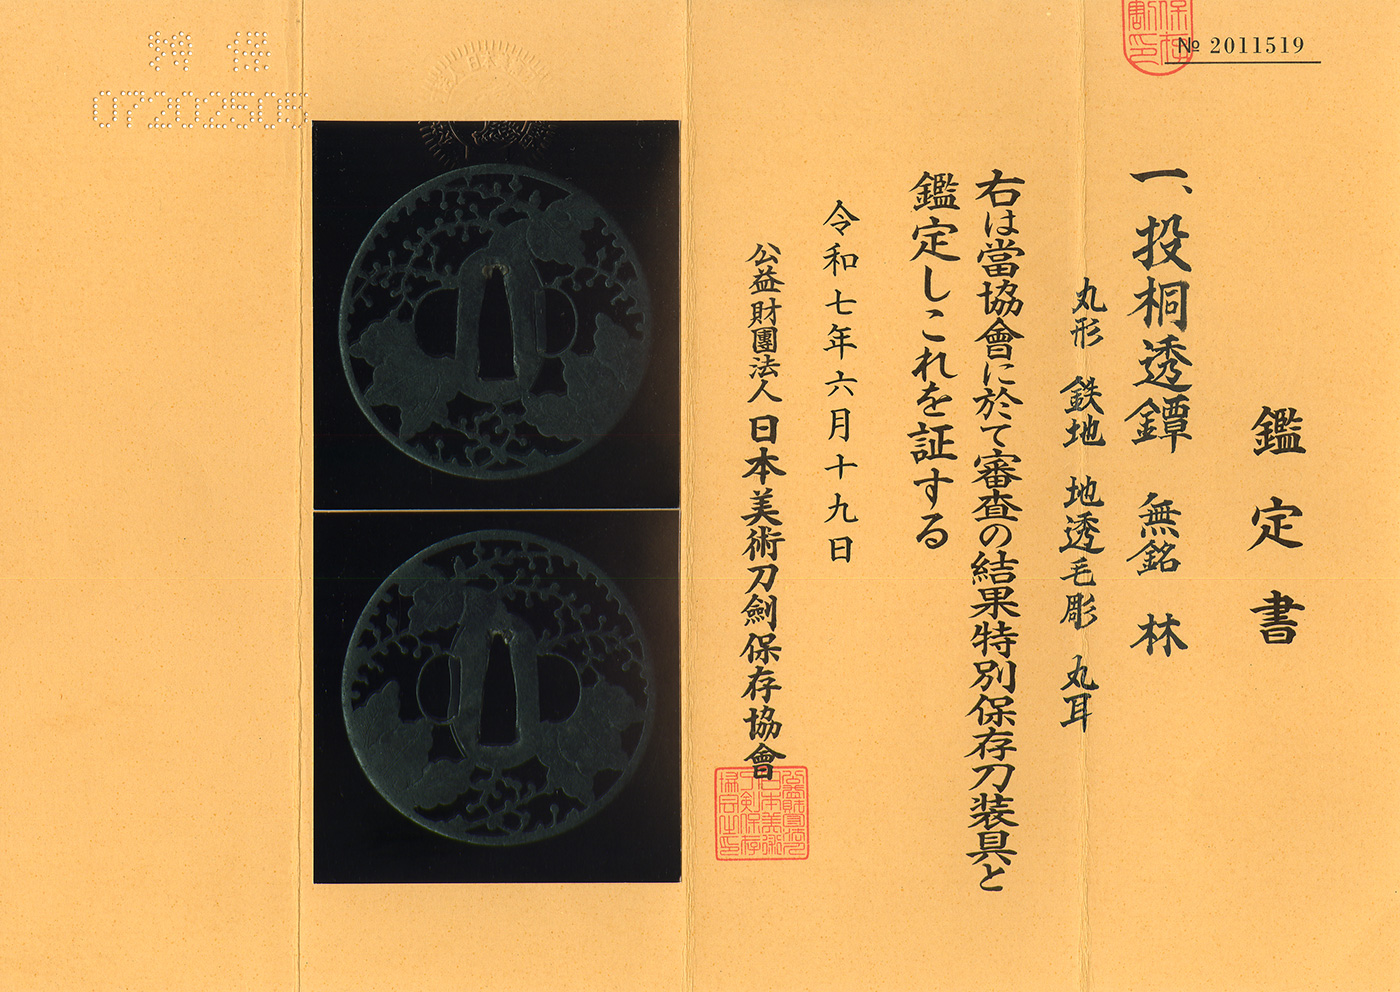 № 2011519
鑑定書
一、投桐透鐔 無銘 林
丸形 鉄地 地透毛彫 丸耳
右は當協會に於て審査の結果特別保存刀装具と
鑑定しこれを証する
令和七年六月十九日
公益財團法人 日本美術刀劍保存協會
公益財団法人日本美術刀剣保存協会之印
07202505